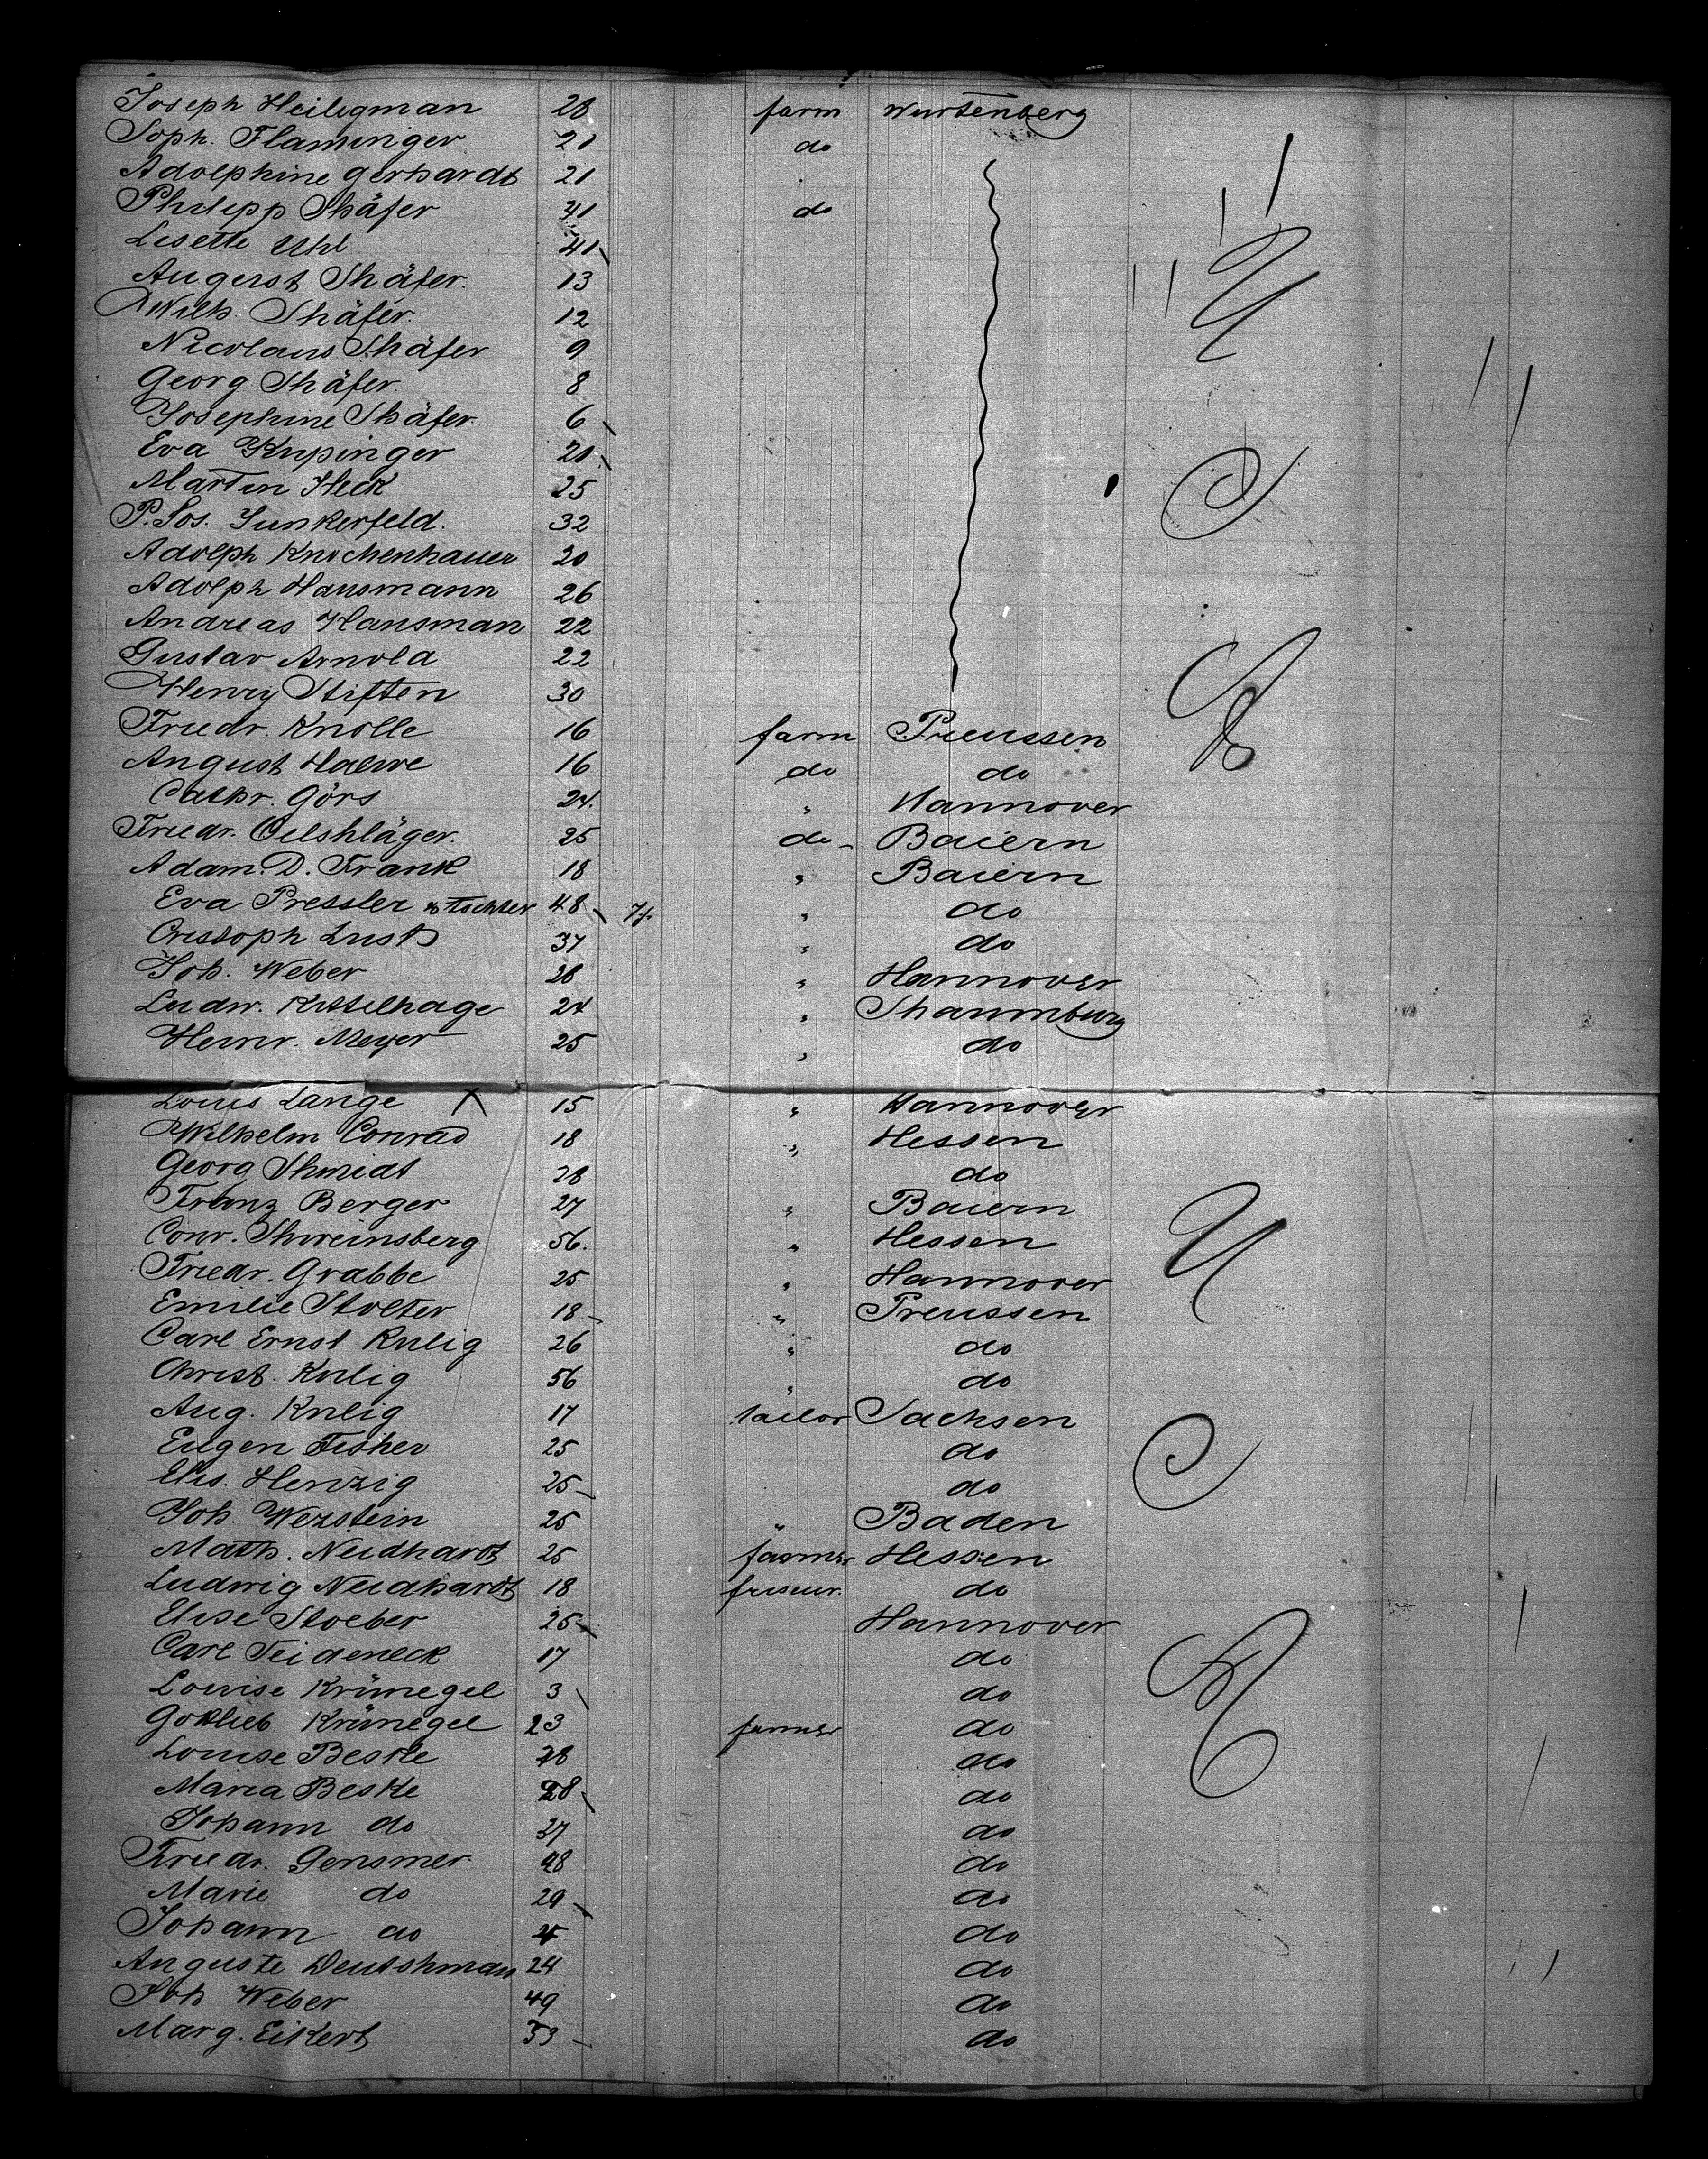 Joseph Heiligman 28 farm Wurtenberg
Soph. Flaminger 21 do
Adolphine gerhardt 21
Philipp Shäfer 41 do
Lisette Uhl 41
Augerst Shäfer. 13
Wilh. Shäfer. 12
Nicolaus Shäfer 9
Georg Shäfer. 8
Josephine Shäfer. 6
Eva Kupinger 21
Martin Heck 25
P. Jos. Junkerfeld. 32
Adolph Knochenhauer 20
Adolph Hausmann 26
Andreas Hansman 22
Gustav Arnold 22
Henry Stiften 30
Friedr. Knolle 16 farm Preussen
August Halwe 16 do do
Cathr. Görs 24. " Hannover
Friedr. Oelshläger. 25 do Baiern
Adam. D. Frank 18 " Baiern
Eva Pressler & Tochter 48 " do
Cristoph Lust 37 " do
Joh. Weber 28 " Hannover
Ludw. Kittelhage 24 " Shaumburg
Heinr. Meyer 25 " do
Louis Lange X 15 " Hannover
Wilhelm Conrad 18 " Hessen
Georg Shmidt 28 do
Franz Berger 27 " Baiern
Conr. Shweinsberg 56. " Hessen
Friedr. Grabbe 25 " Hannover
Emilie Stolter 18 " Preussen
Carl Ernst Kulig 26 " do
Christ. Kulig 56 " do
Aug. Kulig 17 tailor Sachsen
Eugen Fisher 25 do
Elis. Henzig 25 do
Joh. Wezstein 25 " Baden
Math. Neidhardt 25 farmer Hessen
Ludwig Neidhardt 18 friseur. do
Elise Stoeber 25 Hannover
Carl Teideneck 17 do
Louise Krümegel 3 do
Gottlieb Krümegel 23 farmer do
Louise Beske 28 do
Maria Beske 28 do
Johann do 27 do
Friedr. Gensmer. 28 do
Marie do 29 do
Johann do 4 do
Auguste Deutshman 24 do
Joh Weber 49 do
Marg. Eikert 53 do